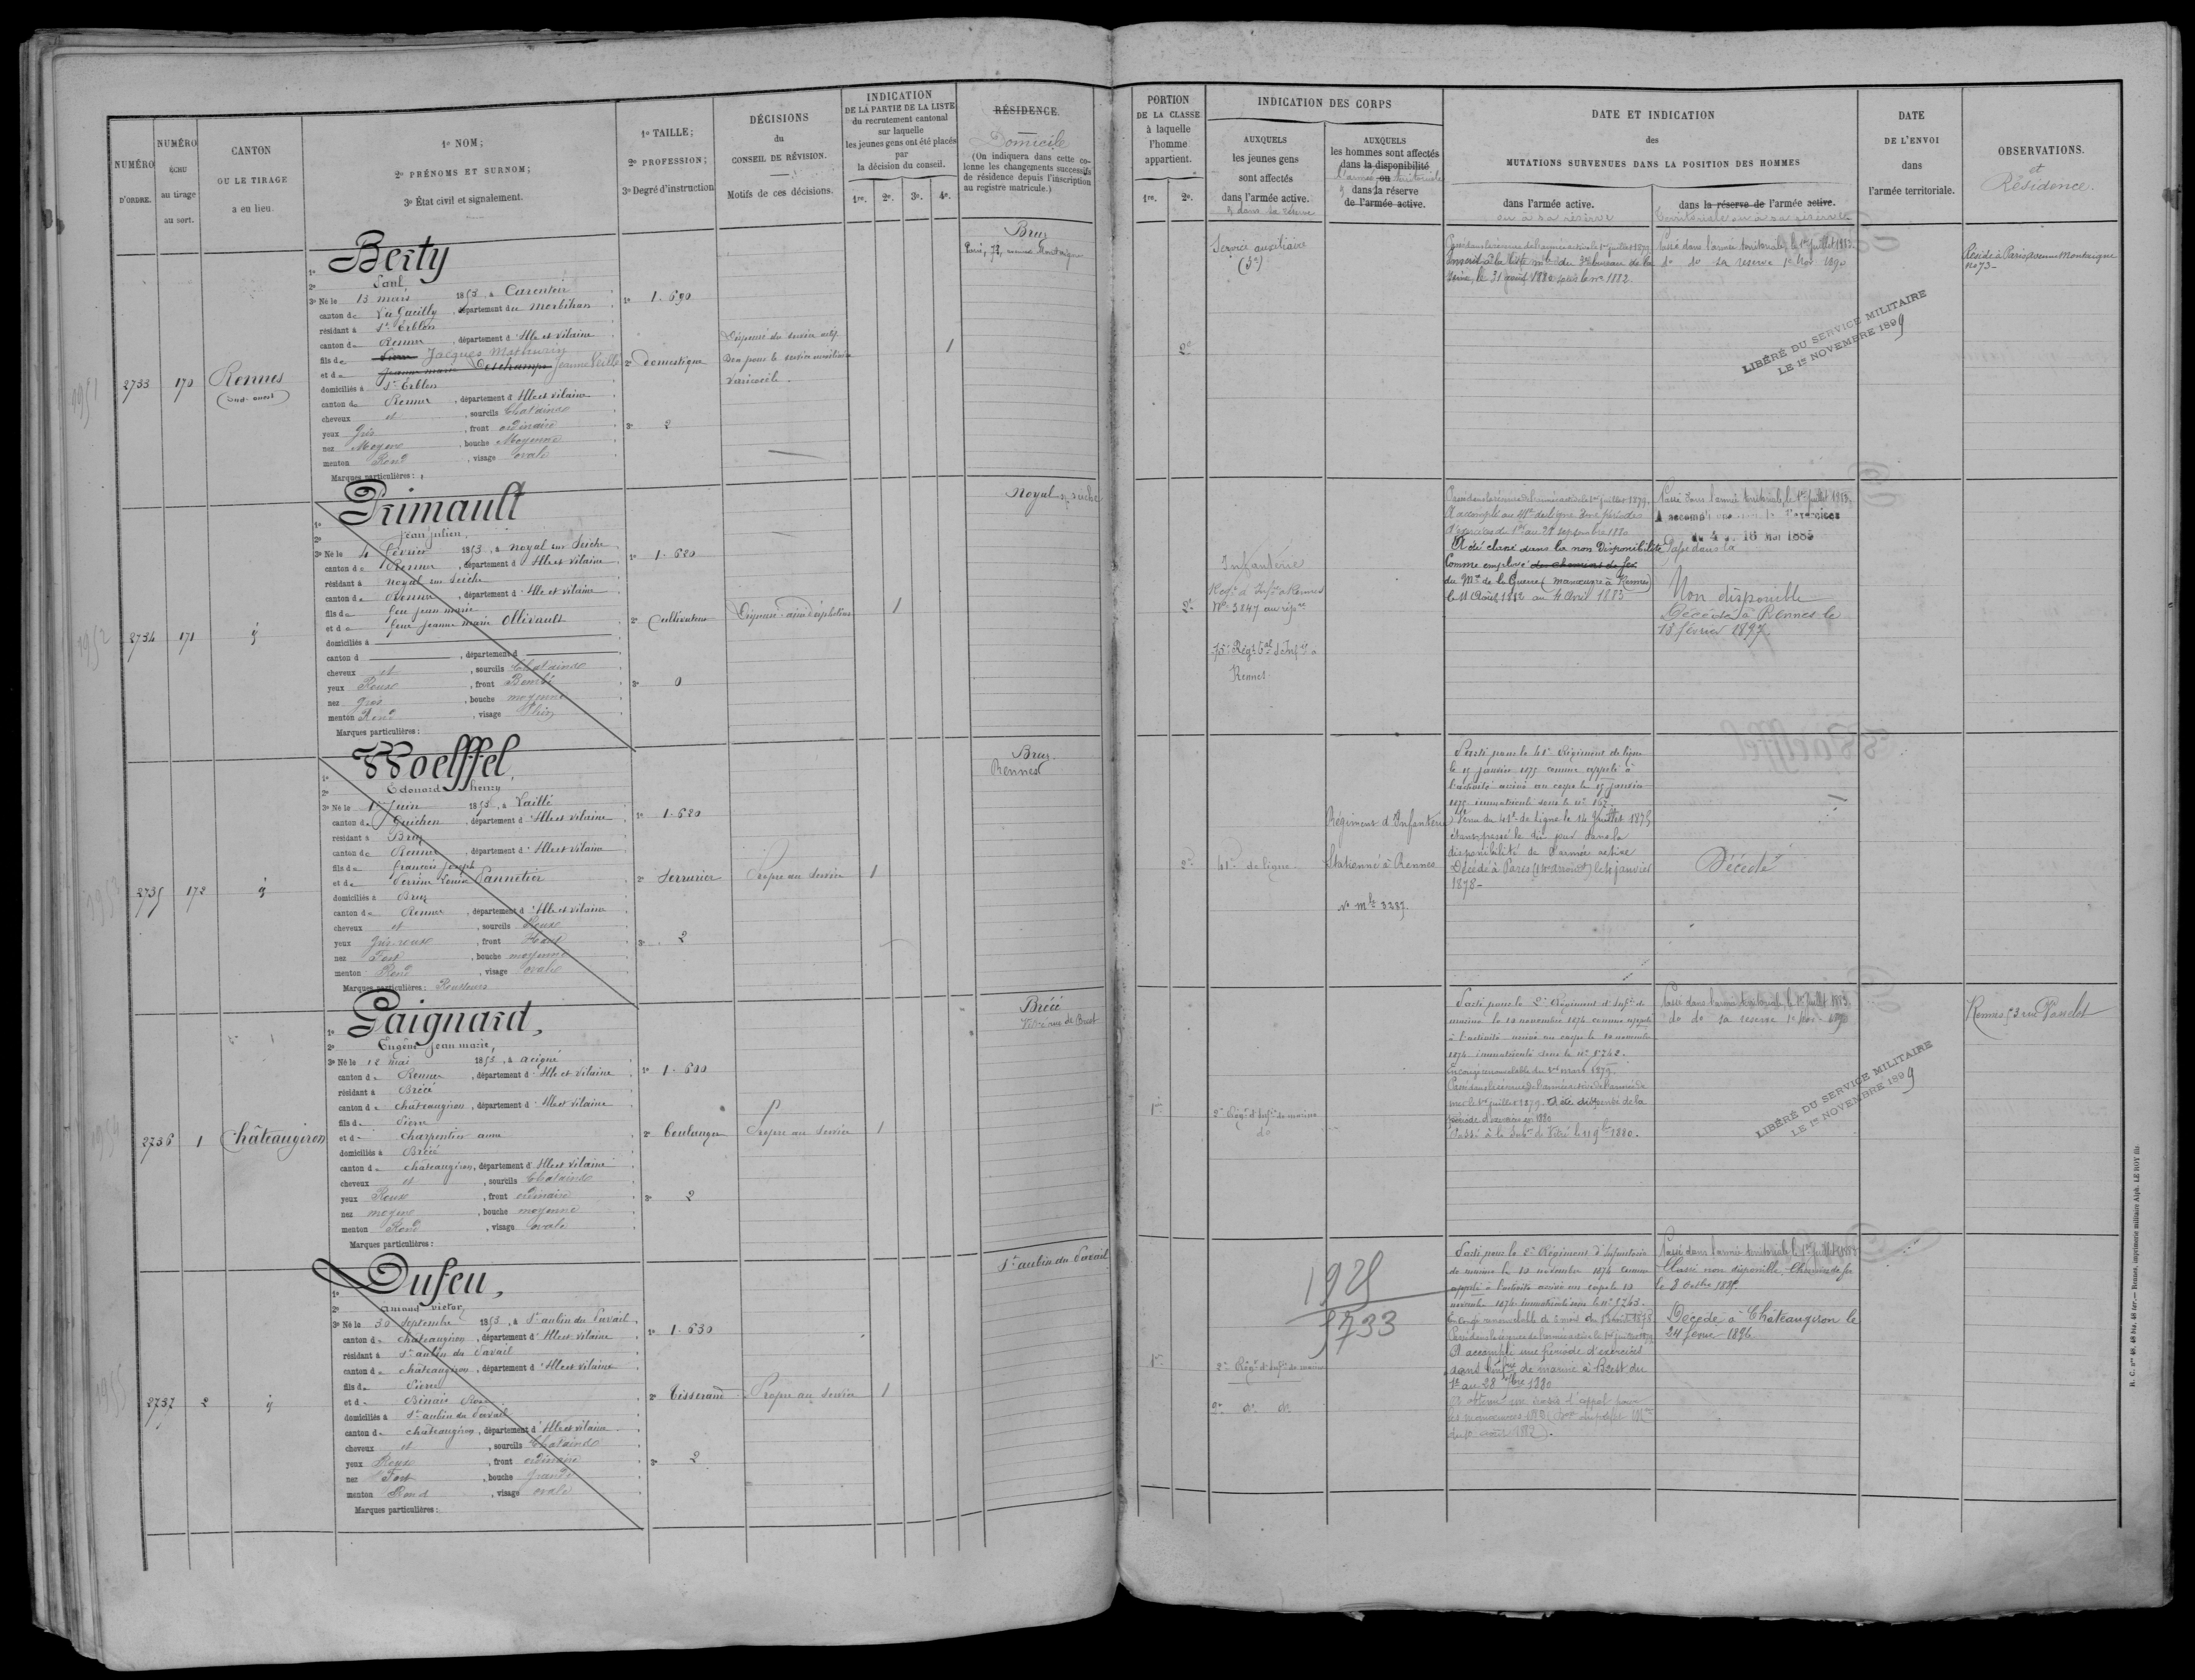 NUMÉRO
D'ORDRE.
NUMÉRO
ÉCHU
au tirage
au sort.
CANTON
OU LE TIRAGE
a eu lieu.
1º NOM;
2º PRÉNOMS ET SURNOM;
3º État civil et signalement.
1º TAILLE;
2º PROFESSION;
3º Degré d'instruction
DÉCISIONS
du
CONSEIL DE RÉVISION.
Motifs de ces décisions.
INDICATION
DE LA PARTIE DE LA LISTE
du recrutement cantonal
sur laquelle
les jeunes gens ont été placés
par
la décision du conseil.
1re. 2e. 3e. 4e.
RÉSIDENCE.
Domicile
(On indiquera dans cette co-
lonne les changements successifs
de résidence depuis l'inscription
au registre matricule.)
PORTION
DE LA CLASSE
à laquelle
l'homme
appartient.
1re. 2e.
INDICATION DES CORPS
AUXQUELS
les jeunes gens
sont affectés
dans l'armée active.
& dans sa réserve
AUXQUELS
les hommes sont affectés
dans la disponibilité
l'armée ou territoriale
& dans la réserve
de l'armée active.
DATE ET INDICATION
des
MUTATIONS SURVENUES DANS LA POSITION DES HOMMES
dans l'armée active.
ou à sa réserve
dans la réserve de l'armée active.
territoriale ou à sa réserve
DATE
DE L'ENVOI
dans
l'armée territoriale.
OBSERVATIONS.
et
Résidence.
1951
2733
170
Rennes
(sud-ouest)
Berty
1º
2º Paul
3º Né le 13 mars 1853, à Carentoir
canton de La Gacilly, département du Morbihan
résidant à St Erblon
canton de Rennes, département d'Ille et Vilaine
fils de Pierre Jacques Mathurin
et de Jeanne marie Deschamps Jeanne Veille
domiciliés à St Erblon
canton de Rennes, département d'Ille et Vilaine
cheveux et, sourcils Chatains
yeux Gris, front ordinaire
nez Moyen, bouche Moyenne
menton Rond, visage ovale
Marques particulières:
1º 1.690
2º domestique
3º 2
Dispensé du service actif
Bon pour le service auxiliaire
Varicocèle.
1
Bruz
Paris, 73, avenue Montaigne
2e
Service auxiliaire
Passé dans la réserve de l'armée active le 1er juillet 1879.
Inscrit à la liste mle du 3e bureau de la
Seine, le 31 1880 sous le no 1882.
Passé dans l'armée territoriale, le 1er juillet 1883.
do do sa reserve 1er Nov 1890
LIBÉRÉ DU SERVICE MILITAIRE
LE 1er NOVEMBRE 1899
Réside à Paris avenue Montaigne
no 73-
1952
2734
171
id
Primault
1º
2º Jean Julien,
3º Né le 4 février 1853, à Noyal sur Seiche
canton de Rennes, département d'Ille et Vilaine
résidant à Noyal sur Seiche
canton de Rennes, département d'Ille et Vilaine
fils de feu Jean marie
et de feue Jeanne marie Ollivault
domiciliés à
canton d , département d
cheveux et, sourcils Chatains
yeux Roux, front Bombé
nez Gros, bouche moyenne
menton Rond, visage Plein
Marques particulières:
1º 1.620
2º Cultivateur
3º 0
Dispensé. ainé d'orphelins
1
Noyal s, seiche
2e
Infanterie
No 3847 au répre
75e Régt tal d'Infie à
Rennes.
Passé dans la réserve de l'armée active le 1er juillet 1879.
A accompli au 41e de ligne une période
d'exercices du 1er au 28 septembre 1880
A été classé dans la non Disponibilité
Comme employé des chemins de fer
du Mre de la Guerre (manœuvre à Rennes)
le 11 Août 1882 au 4 Avril 1883
Passé dans l'armée territoriale, le 1er juillet 1883.
A accompli d'exercices
du 4 16 Mai 1885
Passé dans la
Non disponible
Décédé à Rennes le
18 février 1897.
1953
2735
172
id
Woelffel,
1º
2º Edouard henry
3º Né le 1er Juin 1853, à Laillé
canton de Guichen, département d'Ille et Vilaine
résidant à Bruz
canton de Rennes, département d'Ille et Vilaine
fils de françois Joseph
et de Perrine Louise Pannetier
domiciliés à Bruz
canton de Rennes, département d'Ille et Vilaine
cheveux et, sourcils Roux
yeux Gris-roux, front Haut
nez Fort, bouche moyenne
menton Rond, visage ovale
Marques particulières: Rousseurs
1º 1.620
2º Serrurier
3º 2
Propre au Service
1
Bruz.
Rennes
2e
41e de ligne
Régiment d'Infanterie
Stationné à Rennes
No mle 3287.
Parti pour le 41e Régiment de ligne
le 15 janvier 1875 comme appelé à
l'activité arrivé au corps le 15 janvier
1875 immatriculé sous le no 167.
Venu du 41e de Ligne le 14 juillet 1875
étant passé le dit jour dans la
disponibilité de l'armée active
Décédé à Paris (14e arrondt) le 4 janvier
1878-
Décédé
1954
2736
1
Châteaugiron
Gaignard,
1º
2º Eugène Jean marie,
3º Né le 12 mai 1853, à acigné
canton de Rennes, département d'Ille et Vilaine
résidant à Brécé
canton de châteaugiron, département d'Ille et Vilaine
fils de Pierre
et de charpentier anne
domiciliés à Brécé
canton de châteaugiron, département d'Ille et Vilaine
cheveux et, sourcils Chatains
yeux Roux, front ordinaire
nez moyen, bouche moyenne
menton Rond, visage ovale
Marques particulières:
1º 1.690
2º boulanger
3º 2
Propre au Service
1
Brécé
Vitré rue de Brest
1re
2e Régt d'Infie de marine
do
Parti pour le 2e Régiment d'Infie de
marine le 10 novembre 1874 comme appelé
à l'activité arrivé au corps le 10 novembre
1874 immatriculé sous le no 5742.
En congé renouvelable du 1er mars 1879.
Passé dans la réserve de l'armée active de l'armée de
mer le 1er juillet 1879. A été dispensé de la
période d'exercices en 1880
Passé à la Subon de Vitré le 11 9bre 1880.
Passé dans l'armée territoriale, le 1er juillet 1883
do do sa reserve 1er Nov 1890
LIBÉRÉ DU SERVICE MILITAIRE
LE 1er NOVEMBRE 1899
Rennes 53 rue Vasselot
1955
2737
2
id
Dufeu,
1º
2º Amand victor,
3º Né le 30 Septembre 1853, à St aubin du Pavail
canton de châteaugiron, département d'Ille et Vilaine
résidant à St aubin du Pavail
canton de châteaugiron, département d'Ille et Vilaine
fils de Pierre
et de Binais Rose
domiciliés à St aubin du Pavail
canton de châteaugiron, département d'Ille et Vilaine
cheveux et, sourcils Chatains
yeux Roux, front ordinaire
nez Fort, bouche grande
menton Rond, visage ovale
Marques particulières:
1º 1.630
2º Tisserand
3º 2
Propre au Service
1
St aubin du Pavail
1925
3733
1re
2e Régt d'Infie de marine
2e do do
Parti pour le 2e Régiment d'Infanterie
de marine le 10 novembre 1874 comme
appelé à l'activité arrivé au corps le 10
novembre 1874 immatriculé sous le no 5743.
En congé renouvelable de 6 mois du 1878
Passé dans la réserve de l'armée active le 1er juillet 1879
A accompli une période d'exercices
dans l'Infrie de marine à Brest du
1er au 28 7bre 1880
Passé dans l'armée territoriale le 1er juillet 1883
Classé non disponible. Chemins de fer
le 8 Octbre 1885.
Décédé à Châteaugiron le
24 février 1896
H. C. nos 48, 48 bis, 48 ter.— Rennes, imprimerie militaire Alph. LE ROY fils